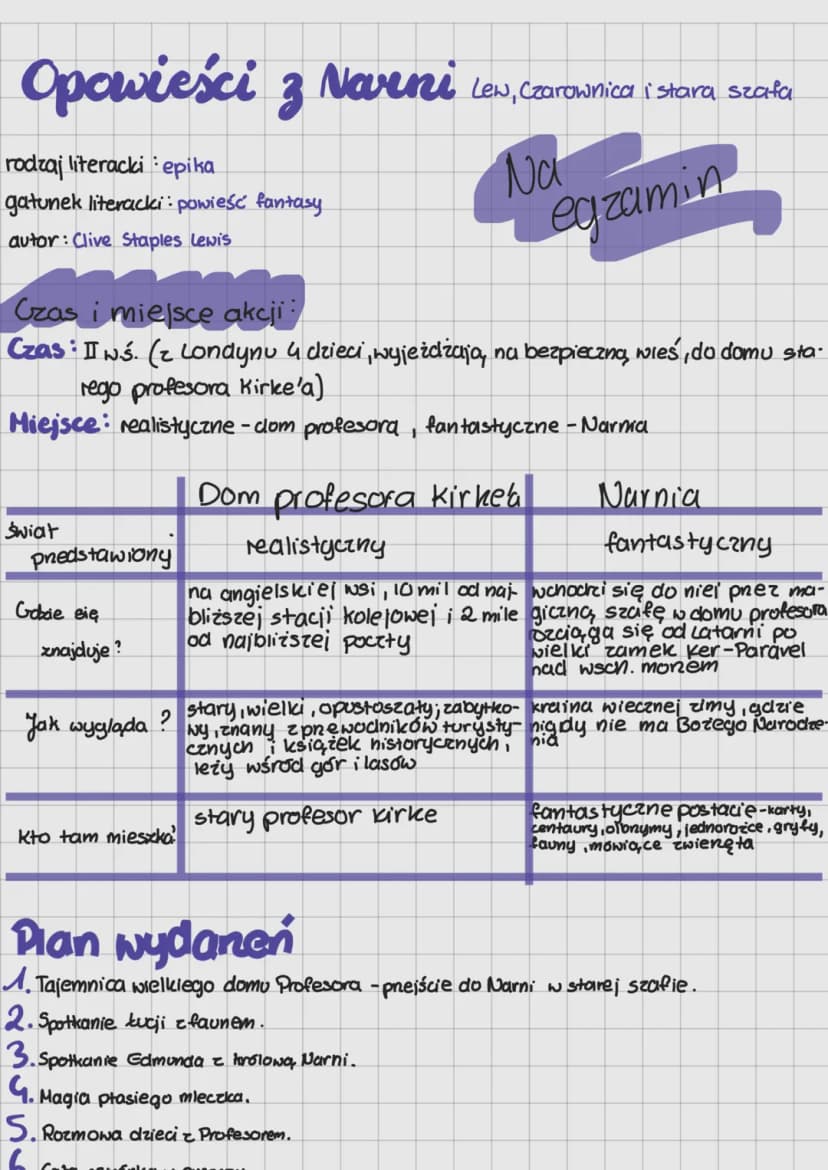 Opowieści z Narni Lew, Czarownica i stara szafa
rodzaj literacki : epika
gatunek literacki : powieść fantasy
autor : Clive Staples Lewis
Na
egzamin
Czas i miejsce akcji :
Czas : II wś. (z Londynu 4 dzieci, wyjeżdżają na bezpieczną wieś, do domu sta-
rego profesora Kirke'a)
Miejsce : realistyczne - dom profesora , fantastyczne - Narnia
Dom profesora Kirke'a
Narnia
świat
przedstawiony
realistyczny
fantastyczny
Gdzie się
znajduje ?
na angielskiej wsi, 10 mil od naj-
bliższej stacji kolejowej i 2 mile
od najbliższej poczty
wchodzi się do niej przez ma-
giczną szafę w domu profesora
rozciąga się od Latarni po
wielki zamek Ker-Paravel
nad wsch. morzem
Jak wygląda ?
stary, wielki, opustoszały, zabytko-
wy, znany z przewodników turysty-
cznych i książek historycznych,
leży wśród gór i lasów
kraina wiecznej zimy, gdzie
nigdy nie ma Bożego Narodze-
nia
Kto tam mieszka?
stary profesor Kirke
fantastyczne postacie - karły,
centaury, olbrzymy, jednorożce, gryfy,
fauny, mówiące zwierzęta
Plan wydarzeń
1. Tajemnica wielkiego domu Profesora - przejście do Narni w starej szafie.
2. Spotkanie Łucji z faunem.
3. Spotkanie Edmunda z królową Narni.
4. Magia ptasiego mleczka.
5. Rozmowa dzieci z Profesorem.
6.